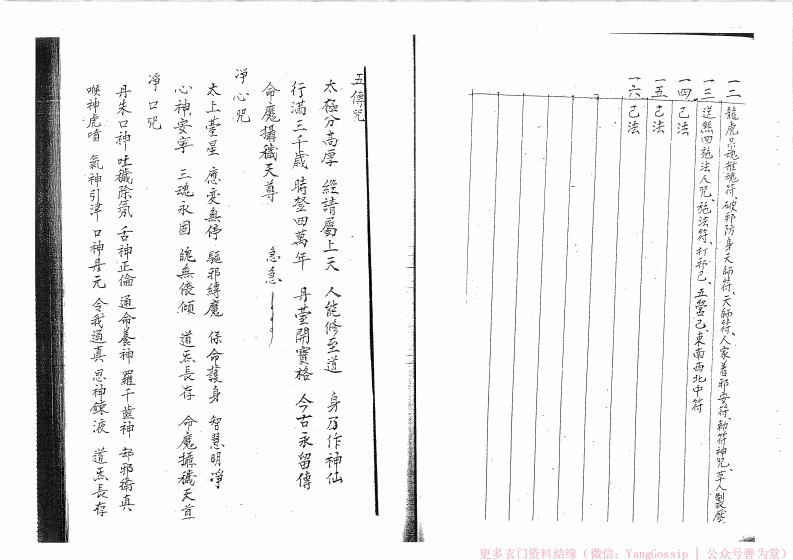 一二 龍虎 魂符破邪防身天師符天師符、人家着邪安符、勅符神咒、草人製
一三 送煞四施法人咒、施法符、打邪已、五營己、東南西北中符
一四 己法
一五 己法
一六 己法
五傳咒
太極分高厚 經請屬上天 人能修至道 身乃作神仙
行滿三千歲 時登四萬年 丹臺開寶格 今古永留傳
命魔攝穢天尊 急急
淨心咒
太上臺星 應变無停 驅邪縛魔 保命護身 智慧明淨
心神安寧 三魂永固 魄無傾 道炁長存 命魔攝穢天尊
淨口咒
丹朱口神 吐穢除氛 舌神正倫 通命養神 羅千齒神 却邪衛真
喉神虎噴 氣神引津 口神丹元 令我通真 思神鍊液 道炁長存
更多玄门资料结缘（微信：YangGossip | 公众号善为堂）